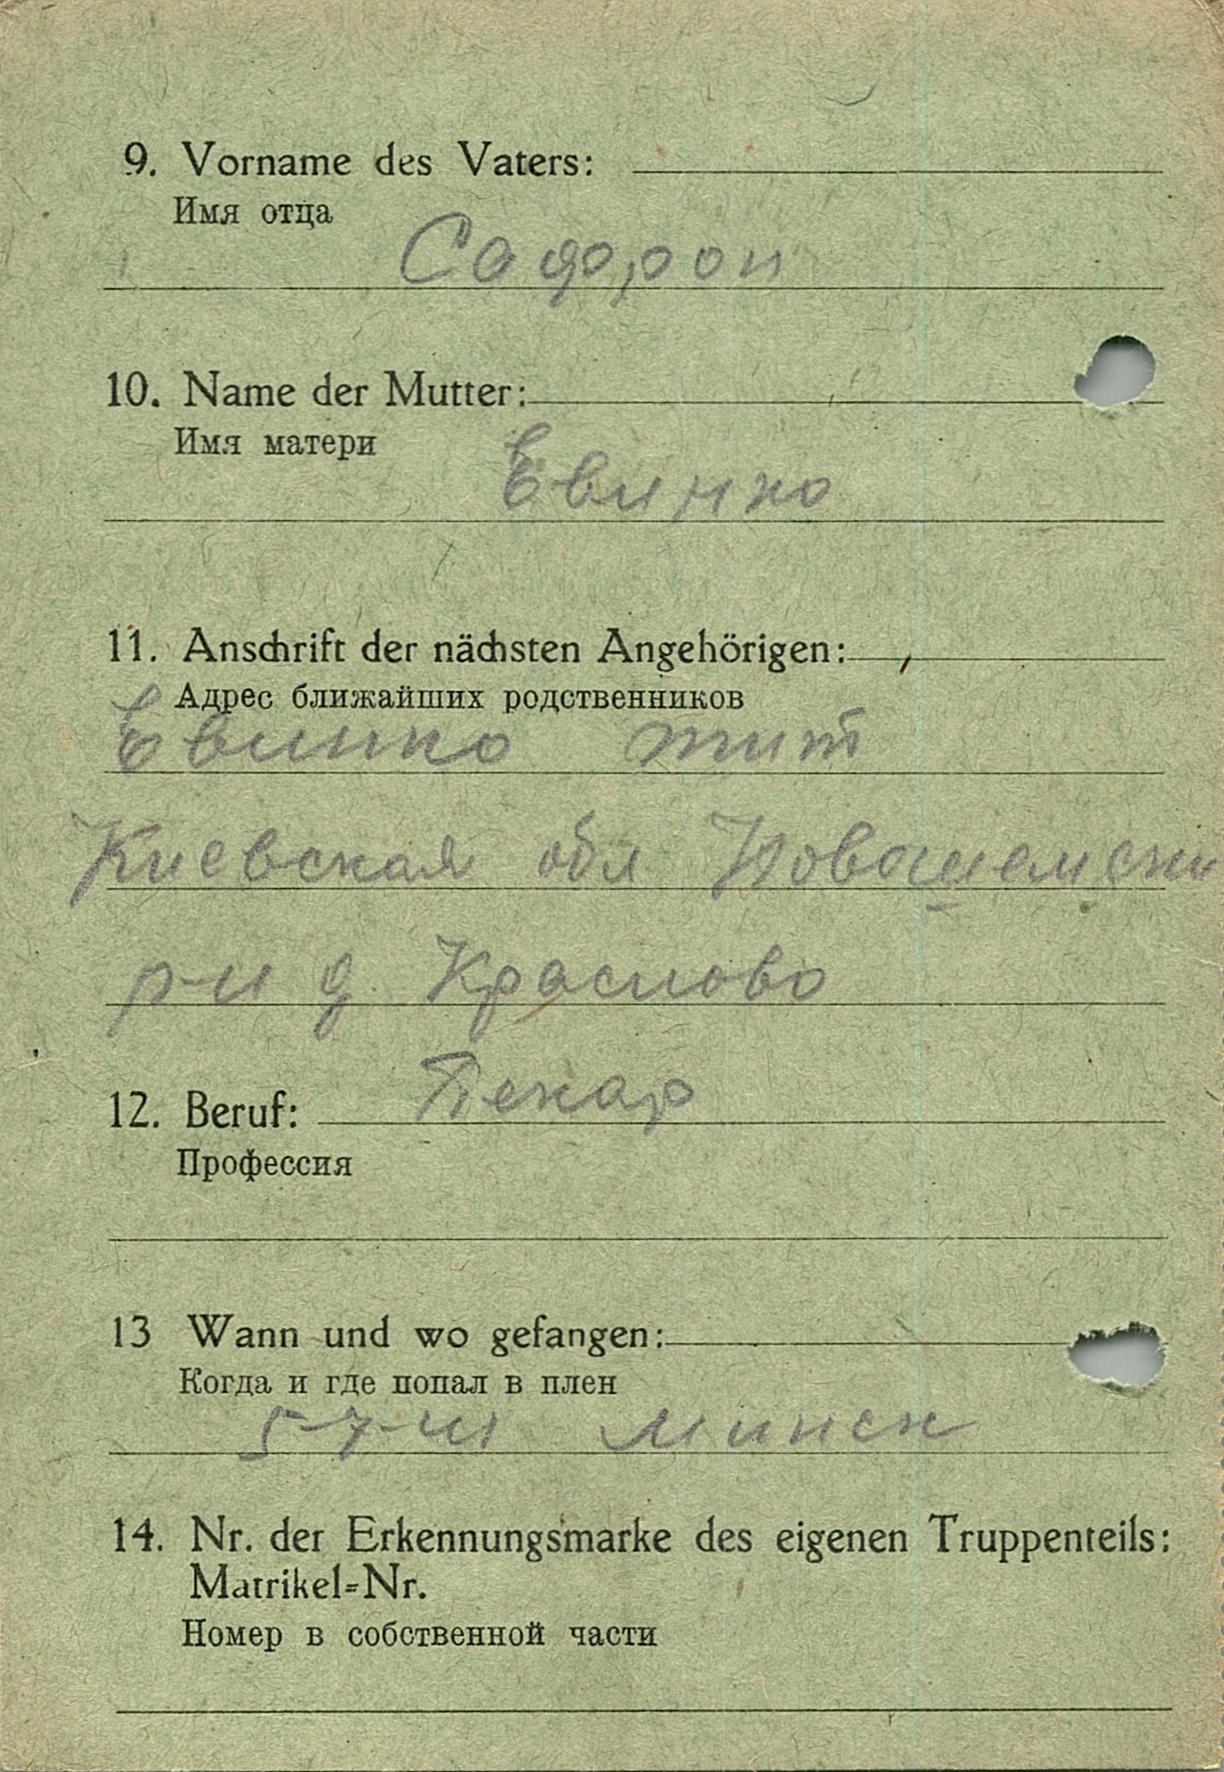 9. Vorname des Vaters:
Имя отца
Сафрон
10. Name der Mutter:
Имя матери
Евинко
11. Anschrift der nächsten Angehörigen:
Адрес ближайших родственников
Евинко тит
Киевская обл
р-н д. Краслово
12. Beruf: Пекар
Профессия
13 Wann und wo gefangen:
Когда и где попал в плен
5-7-41 Минск
14. Nr. der Erkennungsmarke des eigenen Truppenteils:
Matrikel-Nr.
Номер в собственной части